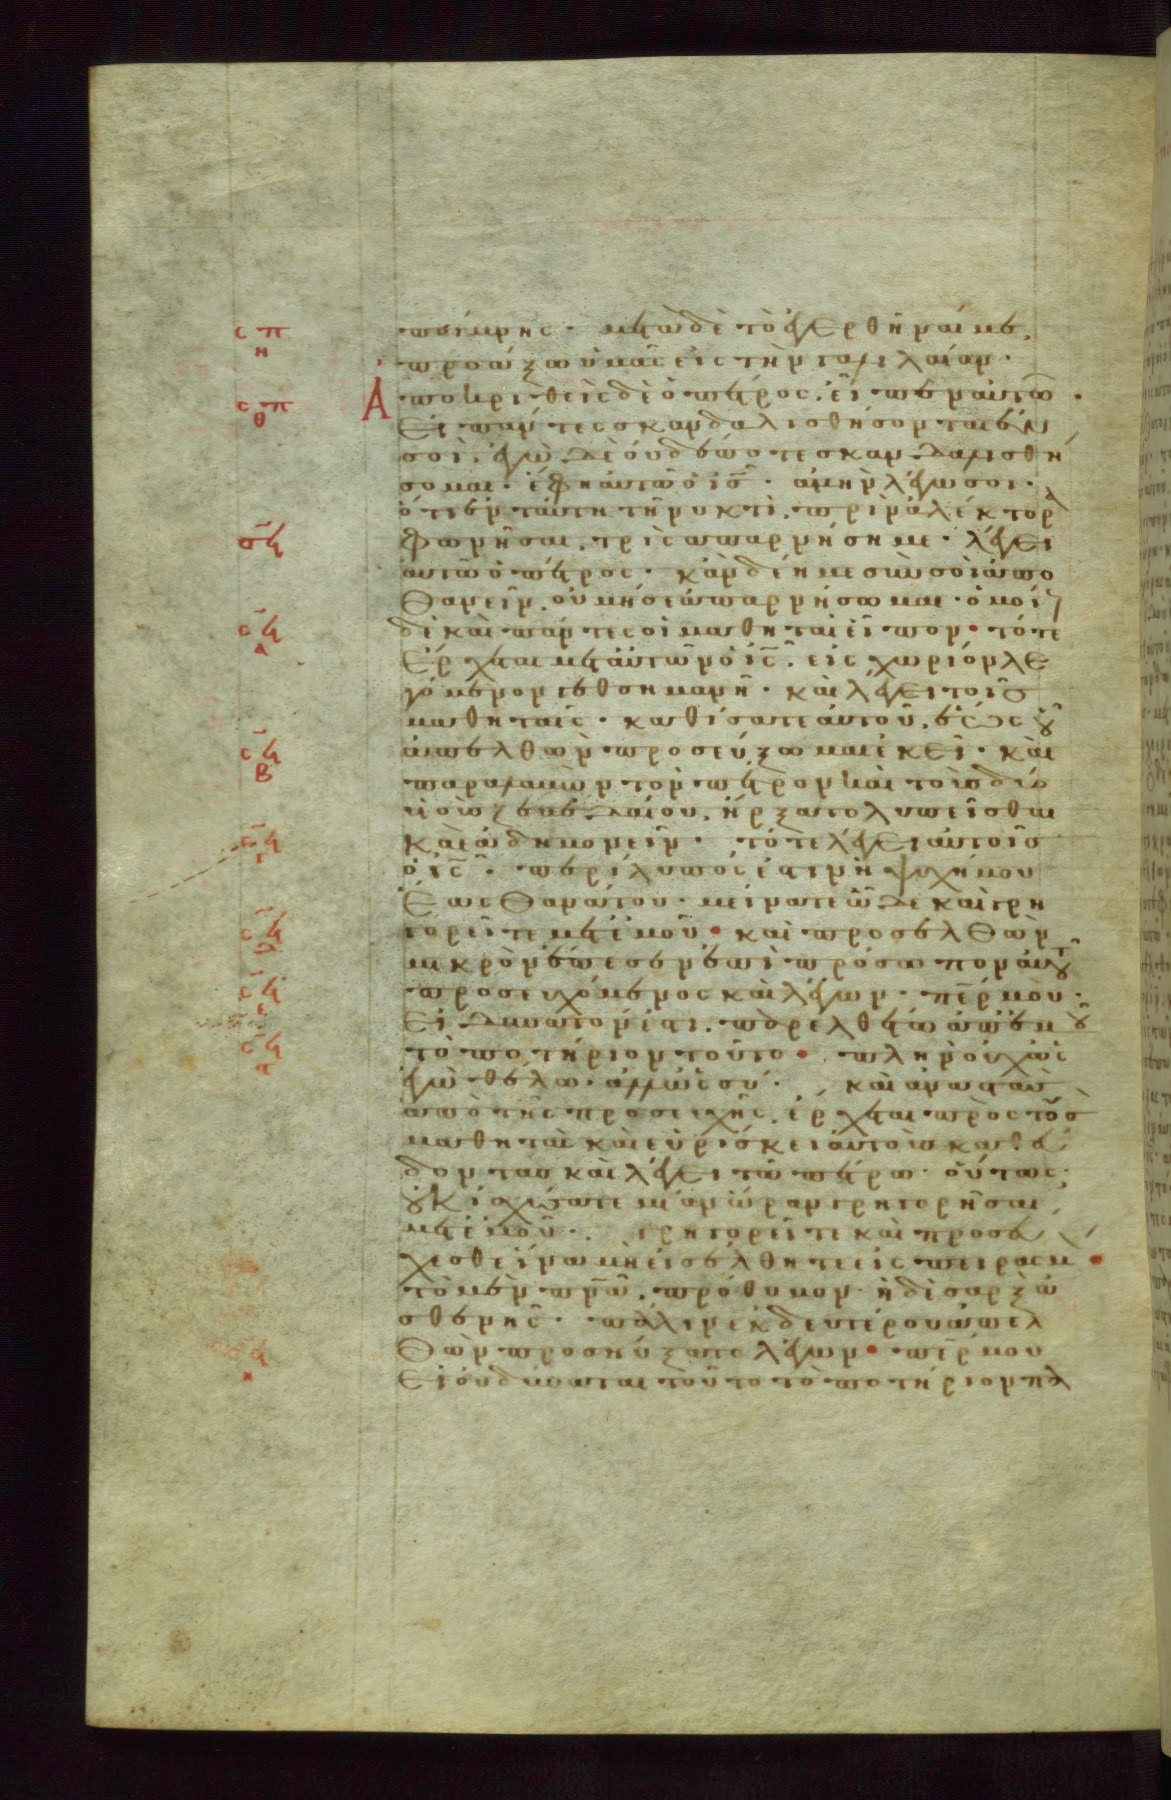 σπη
σπθ
σϟ
σϟα
σϟβ
σϟγ
σϟδ
σϟε
σϟϛ
σϟη
ποίμνης. μετὰ δὲ τὸ ἐγερθῆναί με,
προάξω ὑμᾶς εἰς τὴν γαλιλαίαν.
Ἀποκριθεὶς δὲ ὁ πέτρος, εἶπεν αὐτῶ.
Εἰ πάντες σκανδαλισθήσονται ἐν
σοὶ, ἐγὼ δὲ οὐδέποτε σκανδαλισθή
σομαι. ἔφη αὐτῶ ὁ ι̅ς̅. ἀμὴν λέγω σοι.
ὅτι ἐν ταύτη τῆ νυκτὶ, πρὶν ἀλέκτορα
φωνῆσαι, τρὶς ἀπαρνήση με. λέγει
αὐτῶ ὁ πέτρος. κἂν δέη με σὺν σοὶ ἀπο
θανεῖν, οὐ μή σε ἀπαρνήσωμαι. ὁμοί
δὲ καὶ πάντες οἱ μαθηταὶ εἶπον. τότε
Ἔρχεται μετ αὐτῶν ὁ ι̅ς̅, εἰς χωρίον λε
γόμενον γεθσημανῆ. καὶ λέγει τοῖς
μαθηταῖς. καθίσατε αὐτοῦ, ἕως οὗ
ἀπελθὼν προσεύξωμαι ἐκεῖ. καὶ
παραλαβὼν τὸν πέτρον καὶ τοὺς δύο
υἱοὺς ζεβεδαίου, ἤρξατο λυπεῖσθαι
καὶ ἀδημονεῖν. τότε λέγει αὐτοῖς
ὁ ι̅ς̅. περίλυπός ἐστιν ἡ ψυχή μου
Ἕως θανάτου. μείνατε ὧδε καὶ γρη
γορεῖτε μετ ἐμοῦ. καὶ προσελθὼν
μικρὸν ἔπεσεν ἐπὶ πρόσωπον αὐτοῦ
προσευχόμενος καὶ λέγων. π̅ε̅ρ μου.
Εἰ δυνατόν ἐστι, παρελθέτω ἀπ ἐμοῦ
τὸ ποτήριον τοῦτο. πλὴν οὐχ ὡς
ἐγὼ θέλω. ἀλλ ὡς σύ. καὶ ἀναστὰς
ἀπὸ τῆς προσευχῆς, ἔρχεται πρὸς τοὺς
μαθητὰς καὶ εὑρίσκει αὐτοὺς καθεύ
δοντας καὶ λέγει τῶ πέτρω. οὕτως
οὐκ ἰσχύσατε μίαν ὥραν γρηγορῆσαι
μετ ἐμοῦ. γρηγορεῖτε καὶ προσεύ
χεσθε ἵνα μὴ εἰσέλθητε εἰς πειρασμ.
τὸ μὲν π̅ν̅α̅, πρόθυμον. ἡ δὲ σαρξ ἀ
σθενής. πάλιν ἐκ δευτέρου ἀπελ
θὼν προσηύξατο λέγων. π̅ε̅ρ μου
Εἰ οὐ δύναται τοῦτο τὸ ποτήριον πα